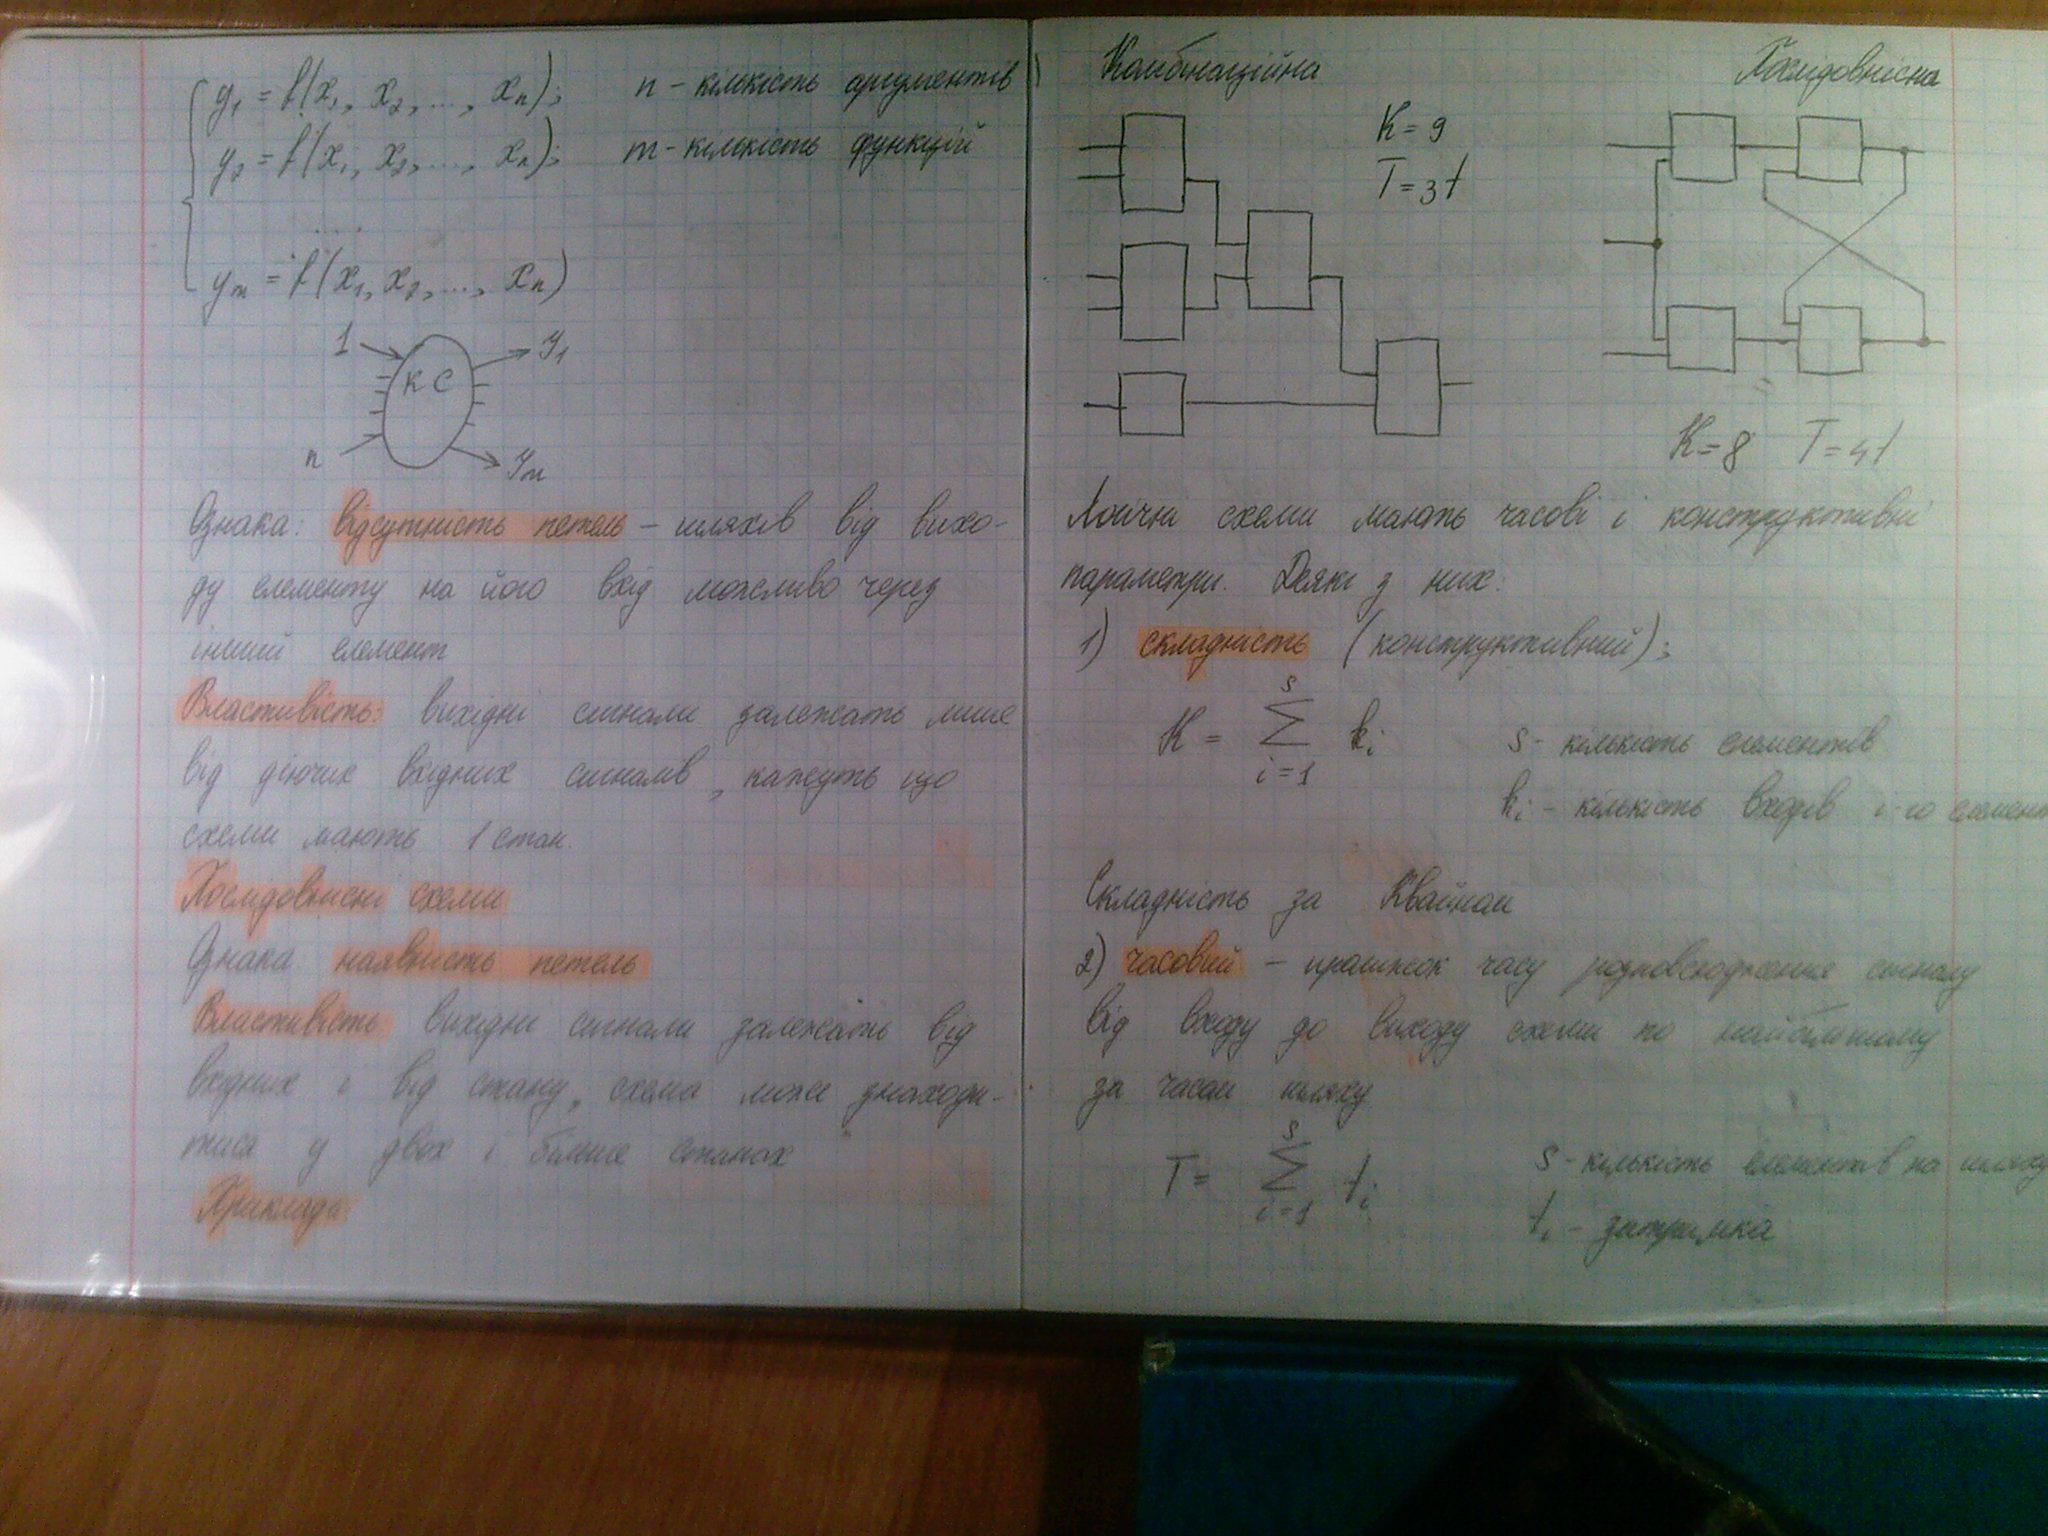 y₁ = f(x₁, x₂, ..., xₙ); n - кількість аргументів
y₂ = f(x₁, x₂, ..., xₙ); m - кількість функцій
....
yₘ = f(x₁, x₂, ..., xₙ)
1 КС y₁
n yₘ
Ознака: відсутність петель - шляхів від вихо-
ду елементу на його вхід можливо через
інший елемент
Властивість: вихідні сигнали залежать лише
від діючих вхідних сигналів, кажуть що
схеми мають 1 стан.
Послідовнісні схеми
Ознака наявність петель
Властивість вихідні сигнали залежать від
вхідних і від стану, схема може знаходи-
тися у двох і більше станах
Приклади
Комбінаційна Послідовнісна
K = 9
T = 3t
K = 8 T = 4t
Логічні схеми мають часові і конструктивні
параметри. Деякі з них:
1) складність (конструктивний);
K = Σ kᵢ (i=1, s) s - кількість елементів
kᵢ - кількість входів і-го елемент
Складність за Квайном
2) часовий - проміжок часу розповсюдження сигналу
від входу до виходу схеми по найбільшому
за часом шляху
T = Σ tᵢ (i=1, s) s - кількість елементів на шляху
tᵢ - затримка